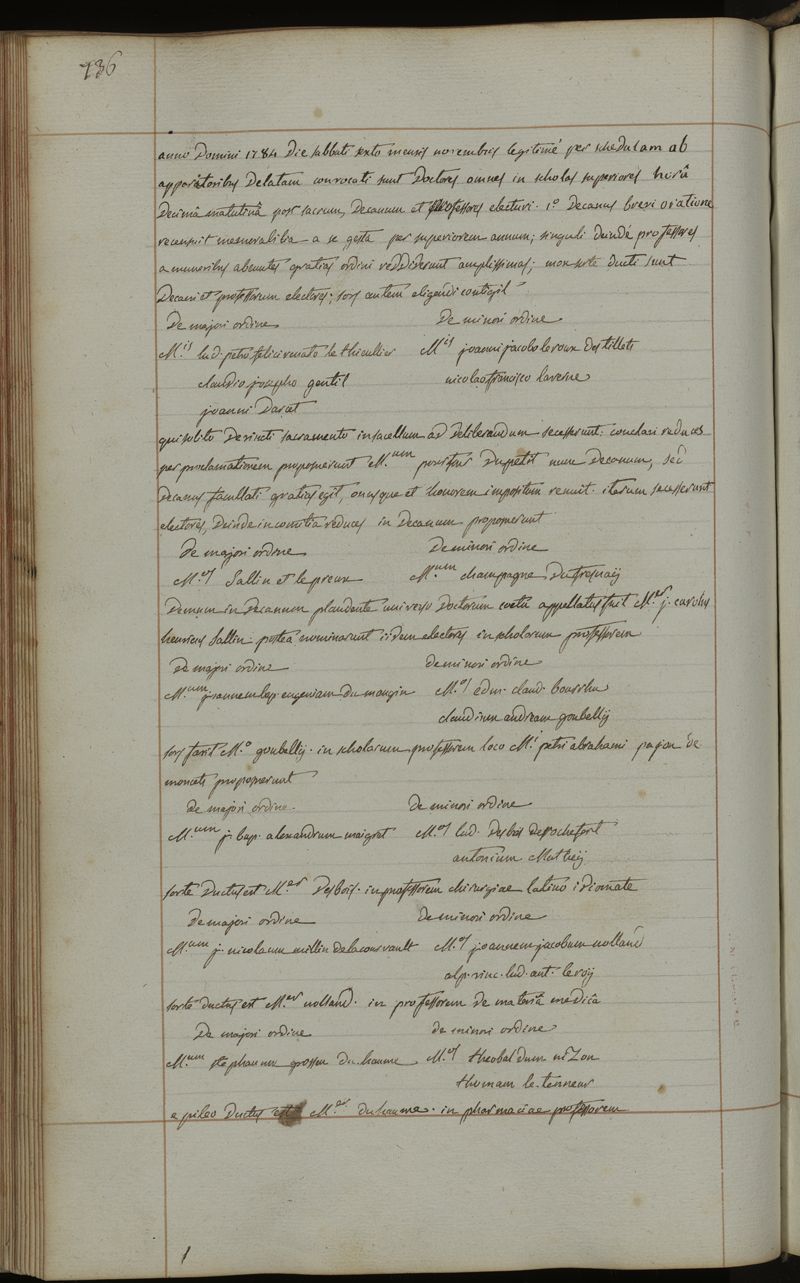 136
anno Domini 1784 Die sabbati sexto mensis novembris legitimé per schedulam ab
apparitoribus Delatam convocati sunt Doctores omnes in scholas superiores horâ
Decimâ matutinâ post sacrum, Decanum et professores electuri. 1.º Decanus brevi oratione
recensuit memorabilia a se gesta per superiorem annum; singuli deindè professores
a muneribus abeuntes gratias ordini reddiderunt amplissimas; mox sorte ducti sunt
Decani et professorum electores; sors autem eligendi contigit
De majori ordine De minori ordine
M.is lud. petro felici renato le thieullier M.is joanni jacobo leroux des tillets
claudio josepho gentil nicolao francisco laverne
joanni Darcet
qui solito Devincti sacramento in sacellum ad Deliberandum secesserunt. conclavi reduces
per proclamationem proposuerunt M.um pourfour Dupetit nunc Decanum, sed
Decanus facultati gratias egit, onusque et honorem impositum renuit. iterum secesserunt
electores, Deinde in comitia reduces in Decanum proposuerunt
de majori ordine De minori ordine
M.os Sallin et lepreux M.um champagne Dufresnaij
Demum in Decanum plaudente universo Doctorum coetu appellatus fuit M.er j. carolus
henricus Sallin. postea nominarunt iidem electores in scholarum professorem
De majori ordine de minori ordine
M.um joannem bap. eugenium Dumangin M.os edm. claud. bourru
claudium andream goubellij
sors favit M.o goubellij. in scholarum professorem loco M.i petri abrahami pajon de
moncets proposuerunt
de majori ordine. de minori ordine
M.um j. bap. alexandrum maigret M.os lud. Desbois de rochefort
antonium Mathey
sorte Ductus est M.er Desbois. in professorem chirurgiae latino idiomate
de majori ordine de minori ordine
M.um j. nicolaum millin delacourvault M.os joannem jacobum nolland
alp. vinc. lud. ant. leroij
sorte ductus est M.er nolland. in professorem de materiâ medicâ
De majori ordine de minori ordine
M.um stephanum possou duhaume M.os theobaldum nizon
thomam le tenneur
e pileo Ductus est M.er duhaume. in pharmaciae professorem